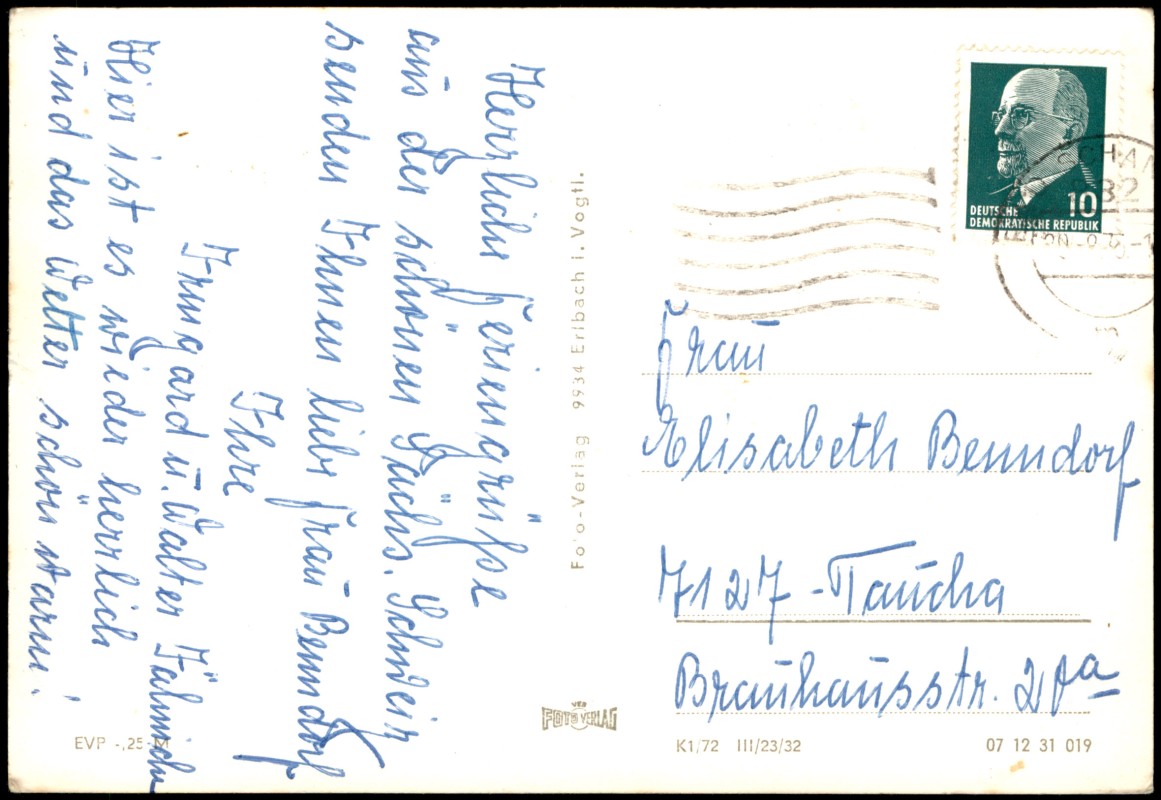 Herzliche Feriengrüße
aus der schönen Sächs. Schweiz
senden Ihnen liebe Frau Benndorf
Ihre
Irmgard u. Walter
Hier ist es wieder herrlich
und das Wetter schön warm!
EVP -,25 M
Foto-Verlag 9934 Erlbach i. Vogtl.
VEB
FOTO VERLAG
DEUTSCHE 10
DEMOKRATISCHE REPUBLIK
Frau
Elisabeth Benndorf
7127 - Taucha
Brauhausstr.
K1/72 III/23/32 07 12 31 019